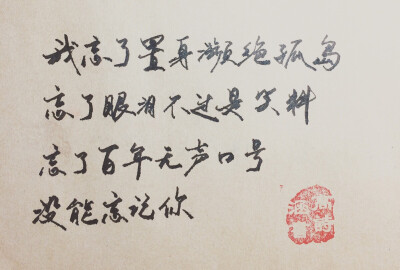 我忘了置身濒绝孤岛
忘了眼泪不过是笑料
忘了百年无声口号
没能忘记你